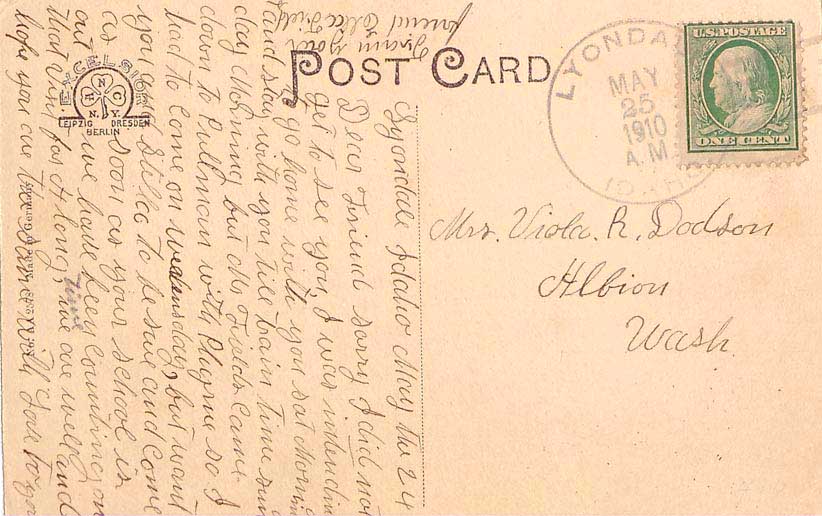 POST CARD
EXCELSIOR
N
H C
N.Y.
LEIPZIG DRESDEN
BERLIN
Made in Germany
LYONDALE
MAY
25
1910
A.M.
IDAHO
U.S. POSTAGE
ONE CENT
Mrs. Viola. R. Dodson
Albion
Wash.
Lyondale Idaho May the 24
Dear Friend sorry I did not
get to see you I was intending
to go home with you sat Morning
and stay with you till train time sun
day Morning but Mr Fields came
down to Pullman with so I
had to come on wedensday, but want
you and Stilla to be sure and come
as soon as your school is
out we have been counting on
that visit for a long time are well and
hope you are the same with love to you
From your
friend